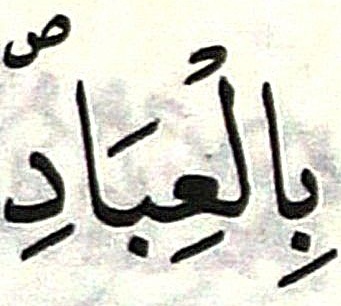 بِالْعِبَادِ ۖص